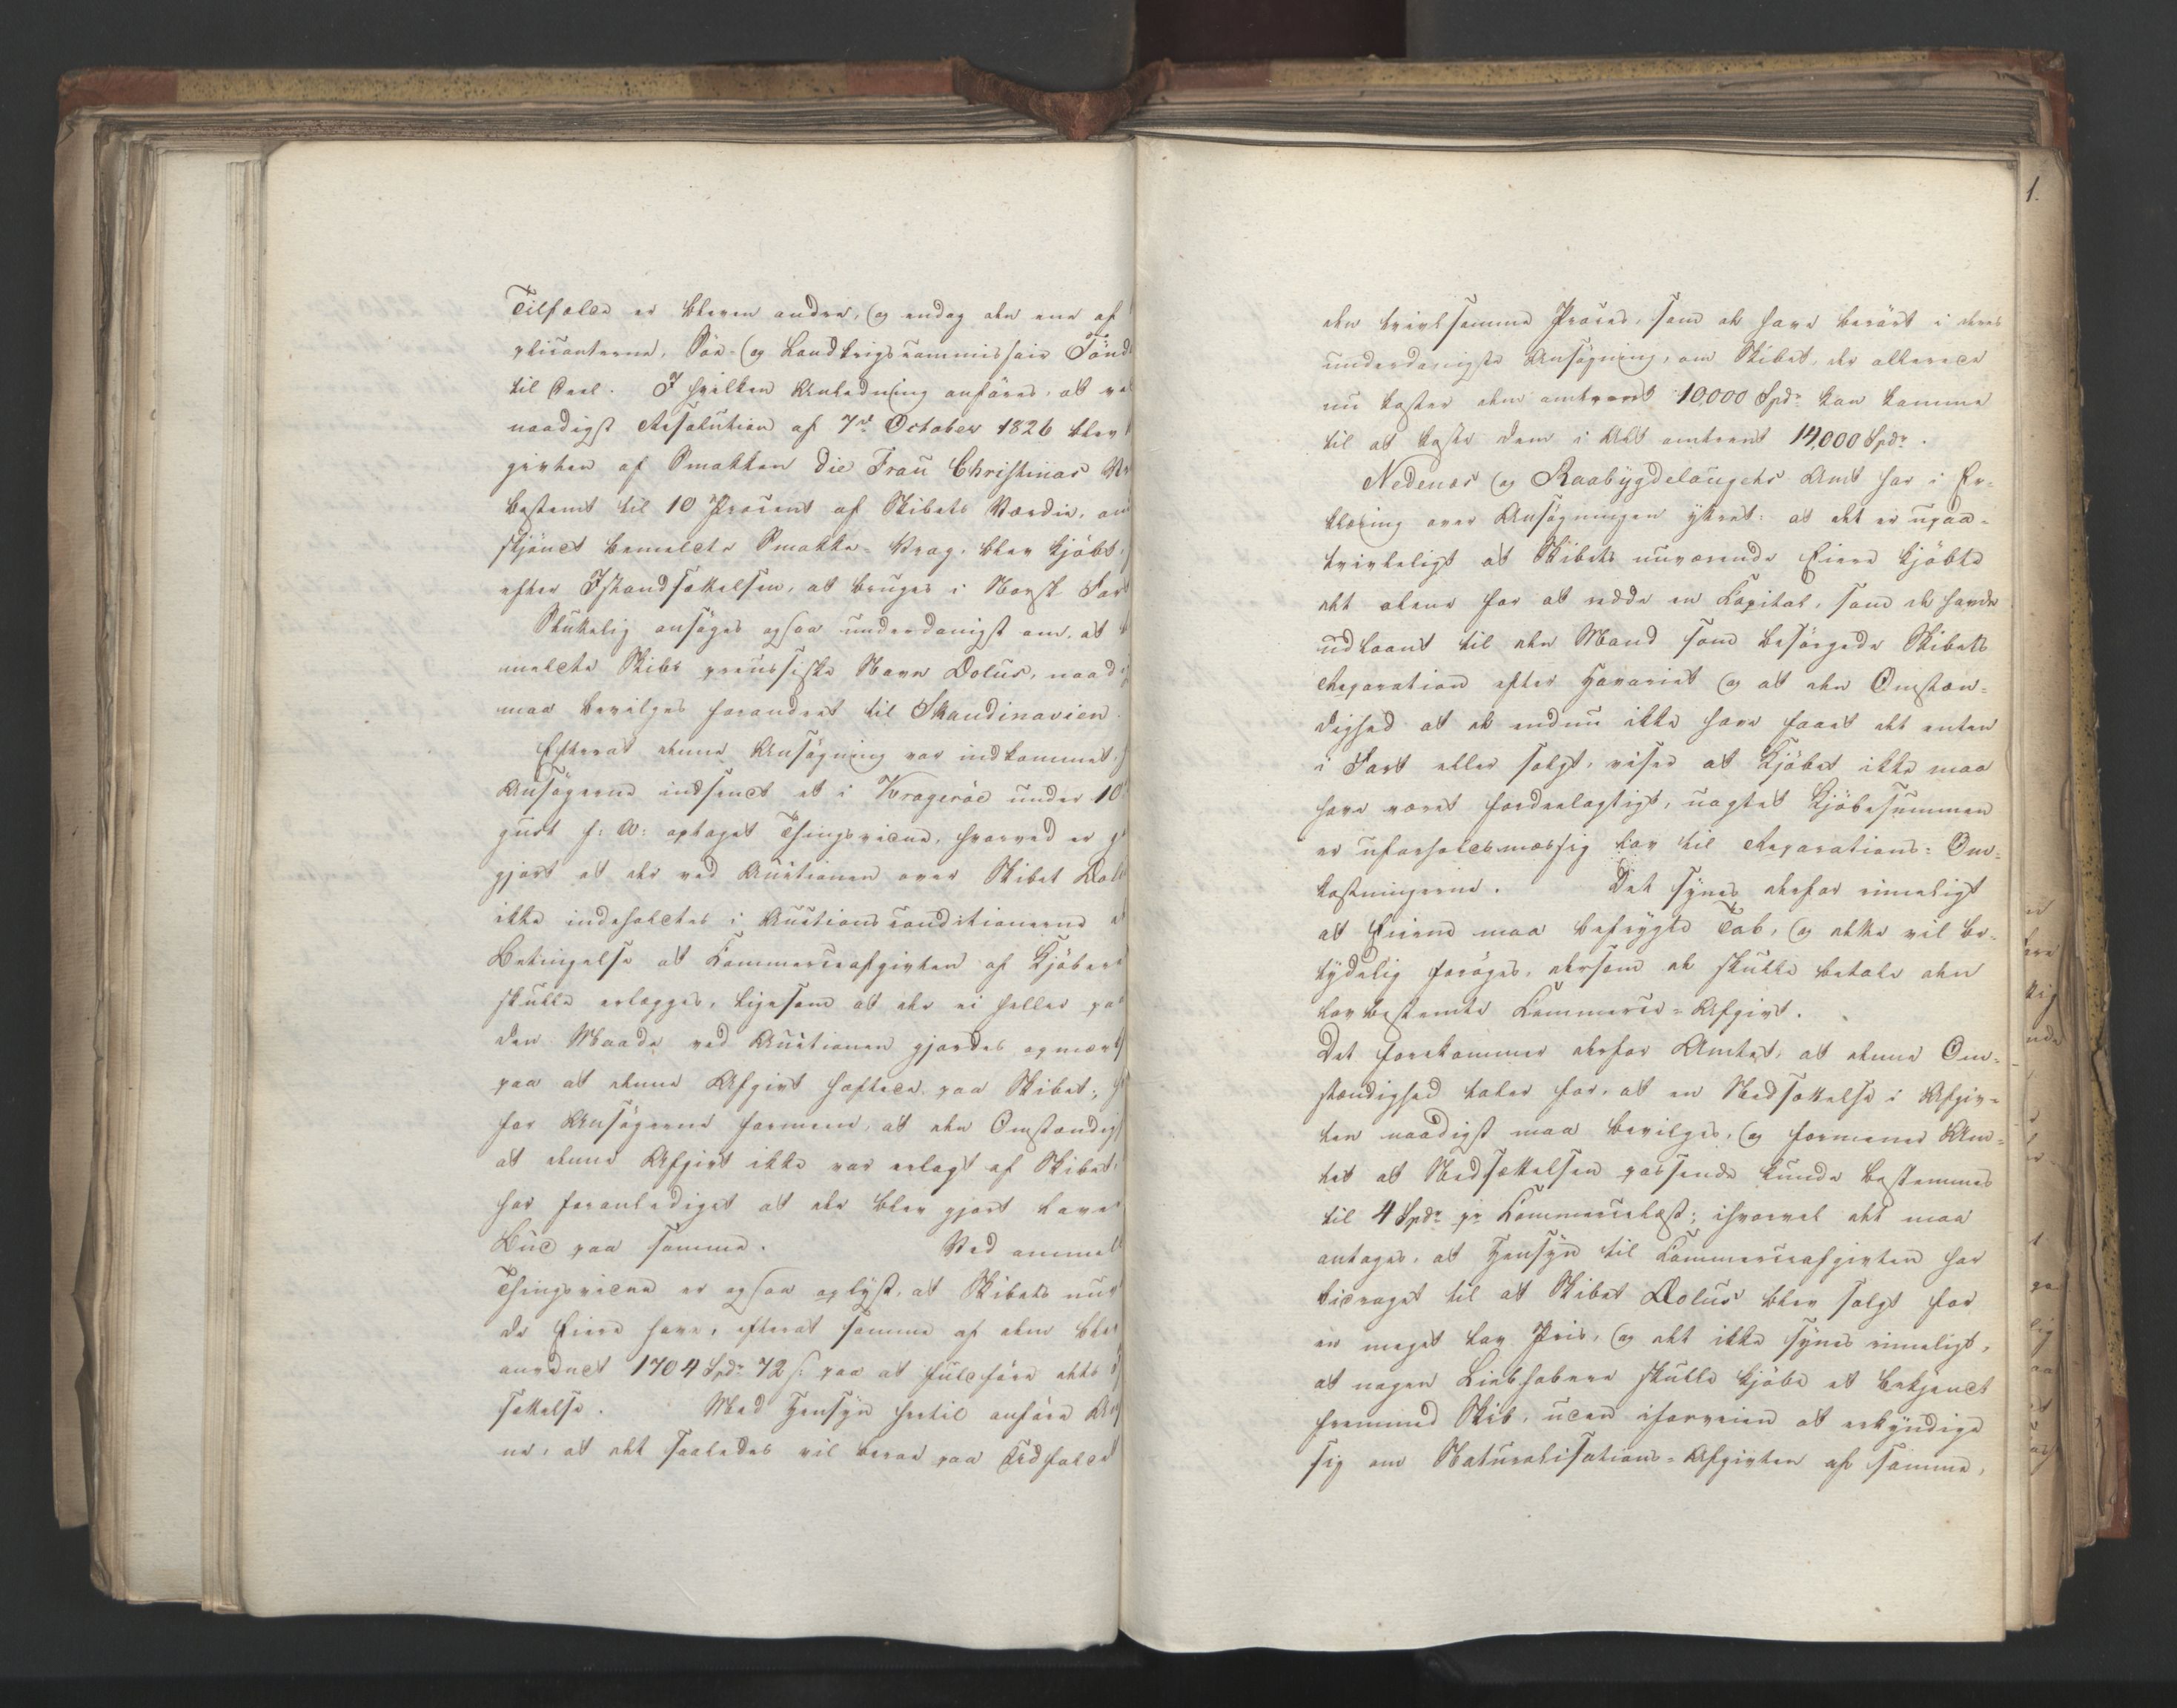 Tilfælde er bleven andre, og endog den ene af
plicanterne, Söe- og Landkrigscommissair Tönd
til Deel. I hvilken Anledning anföres, at ve
naadigst Resolution af 7de October 1826 blev
givten af Smakken Die Frau Christinas Vr
bestemt til 10 Procent af Skibets Værdie, om
skjöndt bemeldte Smakke-Vrag, blev kjöbt,
efter Istandsættelsen, at bruges i Norsk Fart
Skulkelig ansöges ogsaa underdanigst om, at
meldte Skibs preussiske Navn Dolus, naadi
maa bevilges forandret til Skandinavien.
Efterat denne Ansögning var indkommet, h
Ansögerne indsendt et i Krageröe under 10
gust f: A: optaget Thingsvidne, hvorved er g
gjort at der ved Auctionen over Skibet Dol
ikke indeholdtes i Auctionsconditionerne e
Betingelse at Commerceafgivten af Kjöbere
skulle erlægges, ligesom at der ei heller pa
den Maade ved Auctionen gjordes opmærk
paa at denne Afgivt hæftede paa Skibet;
for Ansögerne formene, at den Omstændigh
at denne Afgivt ikke var erlagt af Skibet,
har foranlediget at der blev gjort lave
Bud paa samme. Ved anmel
Thingsvidne er ogsaa oplyst, at Skibets nuv
de Eiere have, efterat samme af dem blev
anvendt 1704 Spdr 72 s paa at fuldföre dets I
sættelse. Med Hensyn hertil anföre An
ne, at det saaledes vil beroe paa Udfaldet
den tvivlsomme Proces, som de have berört i deres
underdanigste Ansögning, om Skibet, der allerede
nu koster dem omtrent 10,000 Spdr kan komme
til at koste dem i Alt omtrent 14,000 Spdr.
Nedenæs og Raabygdelaugets Amt har i Er-
klæring over Ansögningen yttret: at det er upaa-
tvivleligt at Skibets nuværende Eiere kjöbte
det alene for at redde en Capital, som de havde
udlaant til den Mand som besörgede Skibets
Reparation efter Havariet og at den Omstæn-
dighed at de endnu ikke have faaet det enten
i Fart eller solgt, viser at Kjöbet ikke maa
have været fordeelagtigt, uagtet Kjöbesummen
er uforholdsmæssig lav til Reparations-Om-
kostningerne. Det synes derfor rimeligt
at Eierne maa befrygte Tab, og dette vil be-
tydelig foröges, dersom de skulle betale den
lovbestemte Commerce-Afgivt.
Det forekommer derfor Amtet, at denne Om-
stændighed taler for, at en Nedsættelse i Afgiv-
ten naadigst maa bevilges, og formener Am-
tet at Nedsættelsen passende kunde bestemmes
til 4 Spdr pr Commercelæst; ihvorvel det maa
antages, at Hensyn til Commerceafgivten har
bidraget til at Skibet Dolus blev solgt for
en meget lav Priis, og det ikke synes rimeligt,
at nogen Liebhabere skulle kjöbe et bekjendt
fremmed Skib, uden iforveien at erkyndige
sig om Naturalisations-Afgivten af samme,
1.